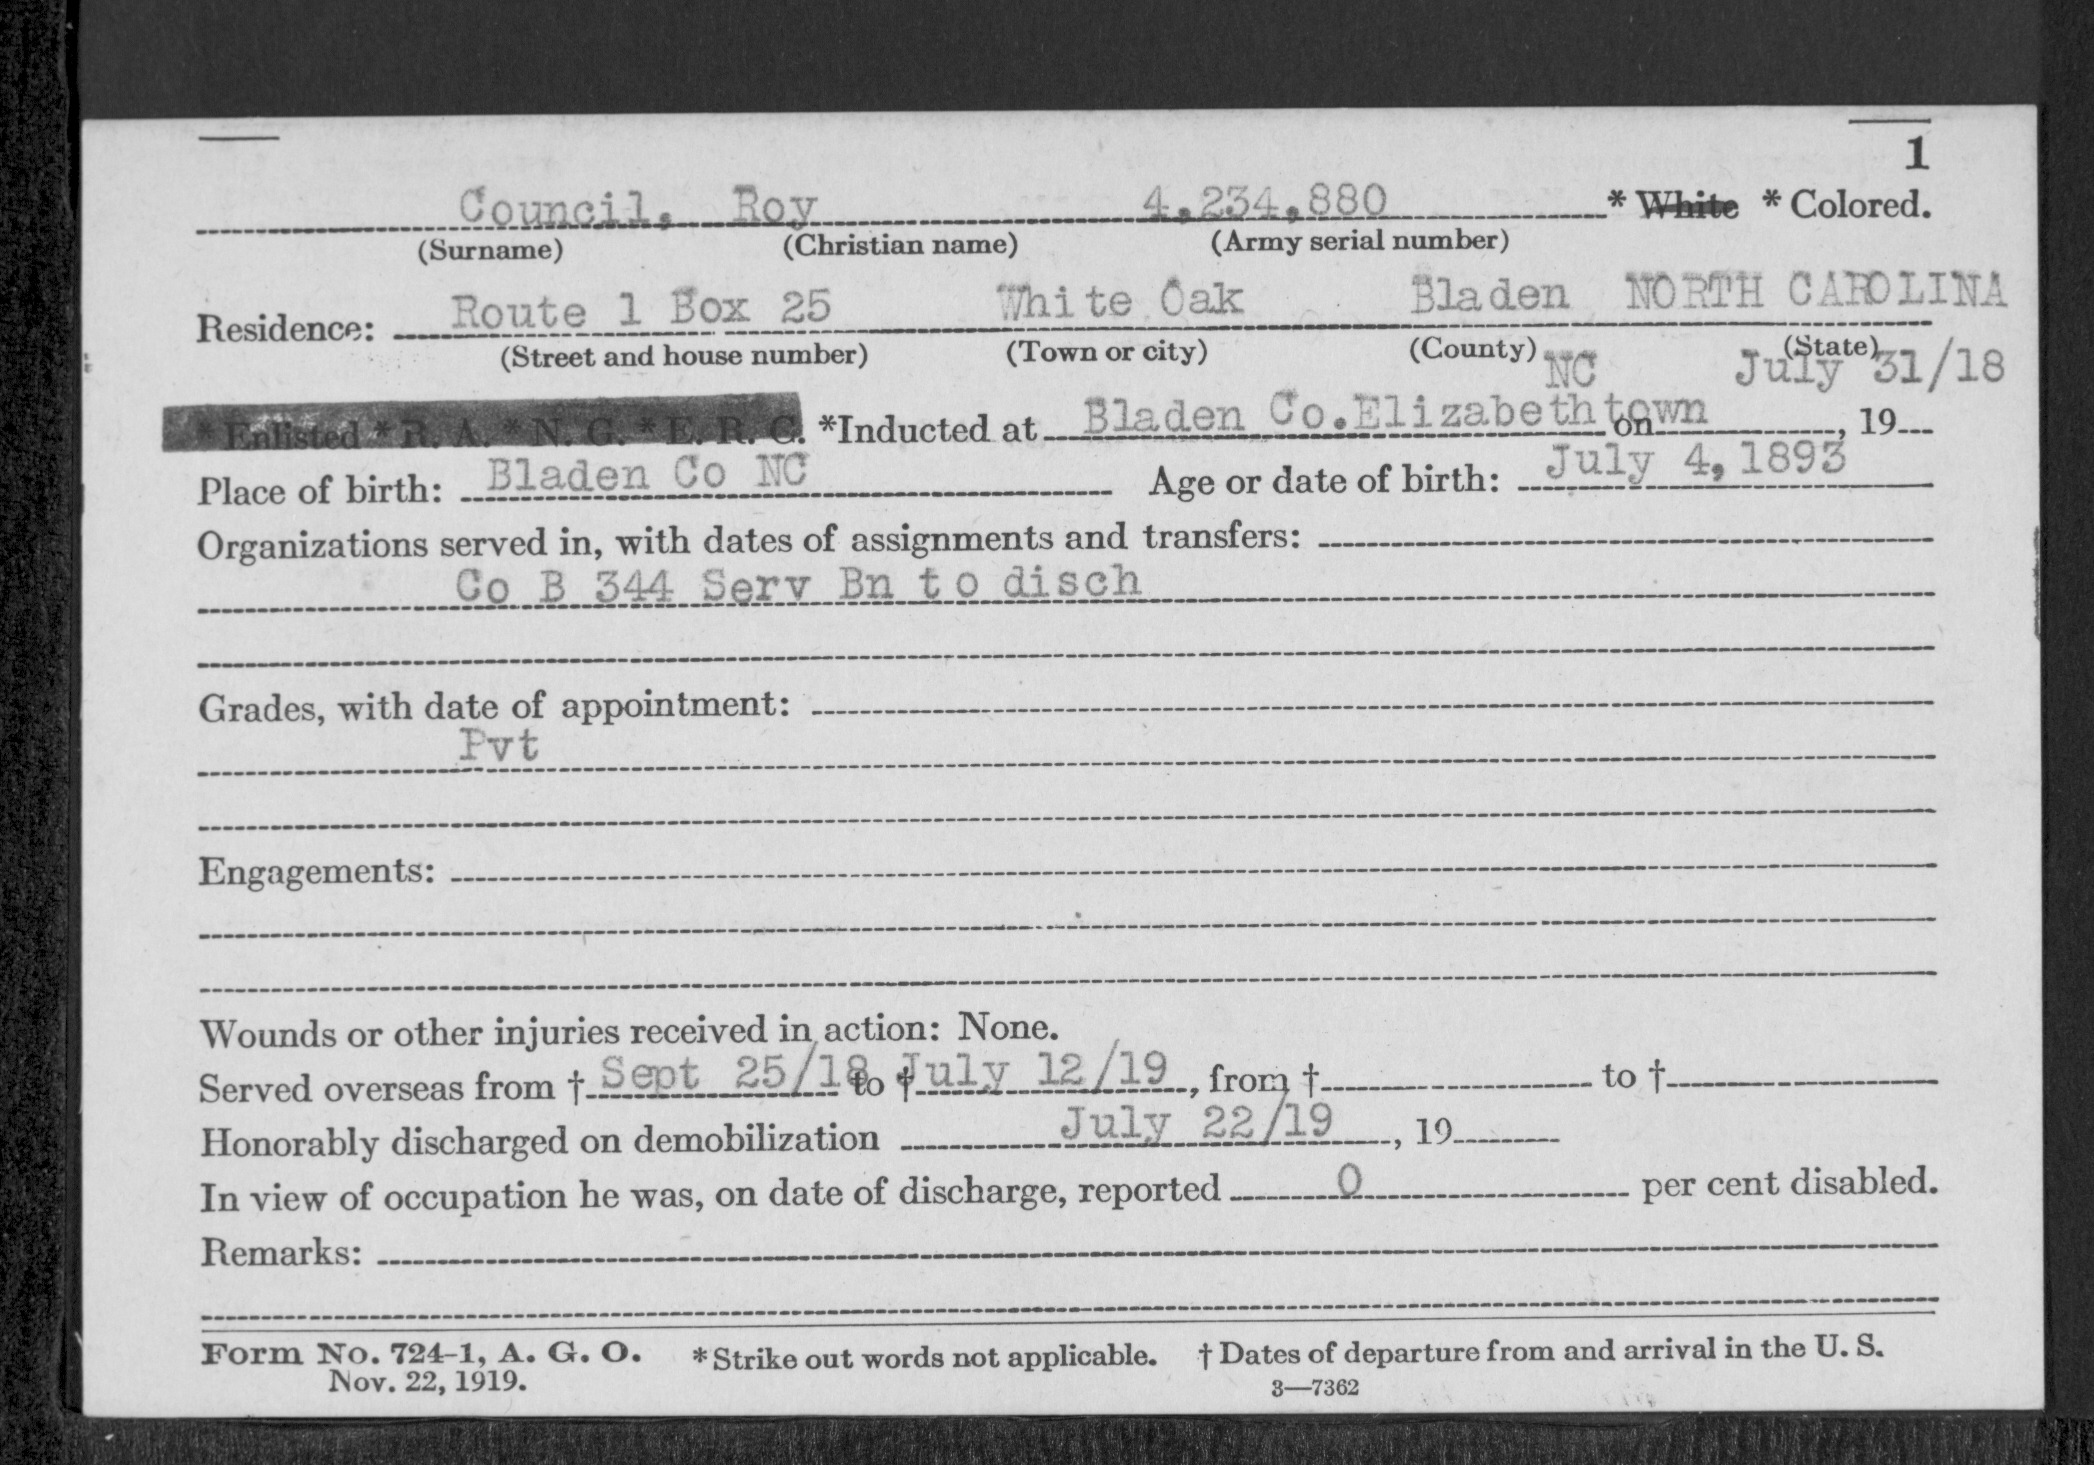 1
Council, Roy 4,234,880 * White * Colored.
(Surname) (Christian name) (Army serial number)
Residence: Route 1 Box 25 White Oak Bladen NORTH CAROLINA
(Street and house number) (Town or city) (County) (State)
NC July 31/18
* Enlisted * R. A. * N. G. * E. R. C. *Inducted at Bladen Co.Elizabethtown on , 19
Place of birth: Bladen Co NC Age or date of birth: July 4, 1893
Organizations served in, with dates of assignments and transfers:
Co B 344 Serv Bn to disch
Grades, with date of appointment:
Pvt
Engagements:
Wounds or other injuries received in action: None.
Served overseas from † Sept 25/18 to † July 12/19, from † to †
Honorably discharged on demobilization July 22/19, 19
In view of occupation he was, on date of discharge, reported 0 per cent disabled.
Remarks:
Form No. 724-1, A. G. O. * Strike out words not applicable. † Dates of departure from and arrival in the U. S.
Nov. 22, 1919. 3—7362